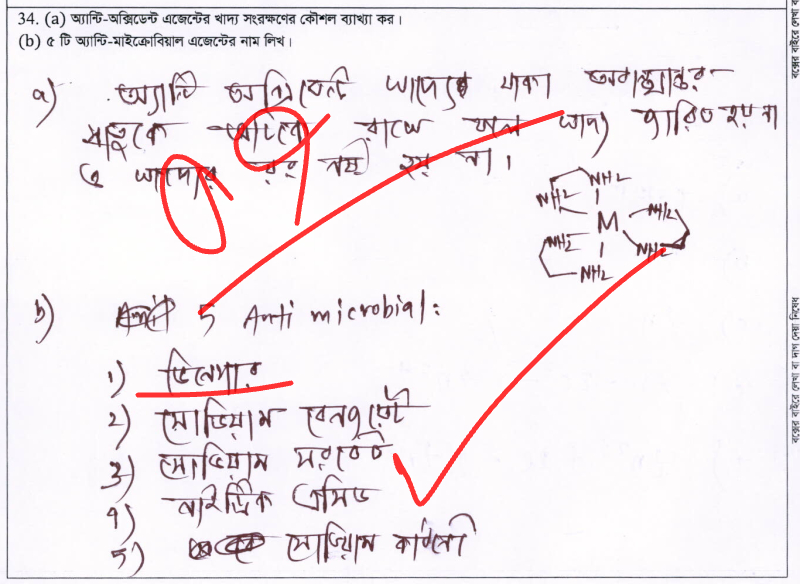 34. (a) অ্যান্টি-অক্সিডেন্ট এজেন্টের খাদ্য সংরক্ষণের কৌশল ব্যাখ্যা কর।
(b) ৫ টি অ্যান্টি-মাইক্রোবিয়াল এজেন্টের নাম লিখ।
a) অ্যান্টি অক্সিডেন্ট খাদ্যে থাকা অবস্থান্তর
ধাতুকে রাখে ফলে খাদ্য জারিত হয় না
ও খাদ্যের রং নষ্ট হয় না।
NH₂ NH₂
M NH₂
NH₂ NH₂
NH₂
b) 5 Anti microbial:
1) ভিনেগার
2) সোডিয়াম বেনজুয়েট
3) সোডিয়াম সরবেট
4) নাইট্রিক এসিড
5) সোডিয়াম
বক্সের বাইরে লেখা বা দাগ দেয়া নিষেধ